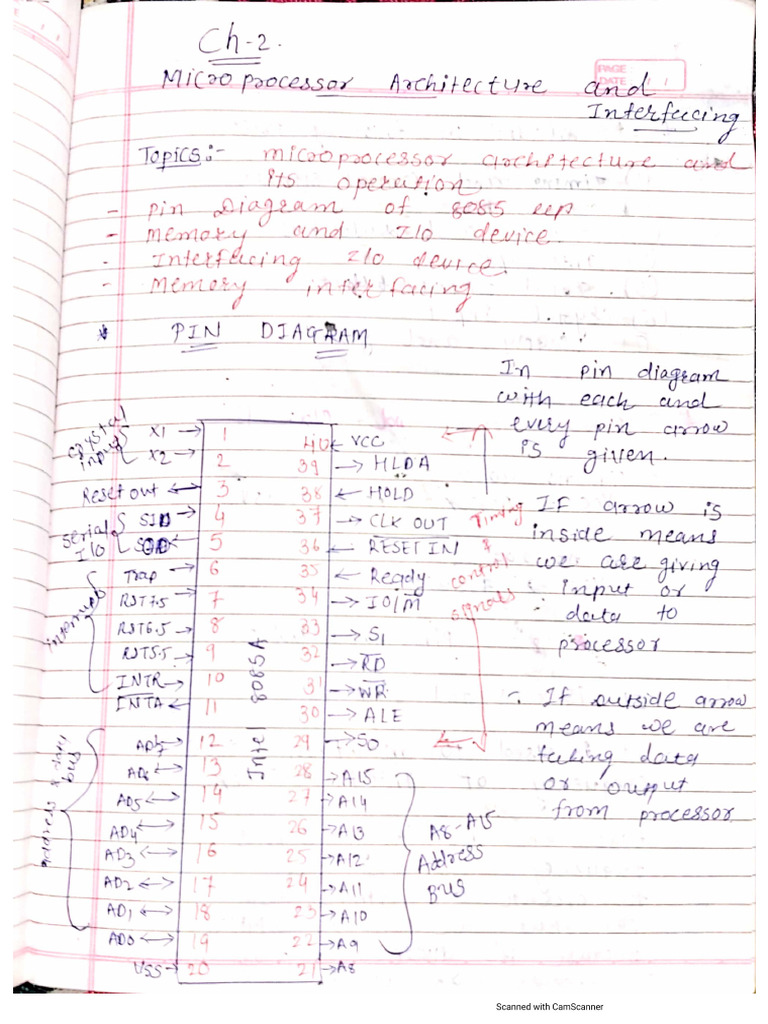 Ch-2.
PAGE
DATE
Microprocessor Architecture and
Interfacing
Topics:- microprocessor architecture and
its operation
- pin Diagram of 8085 up
- memory and I/O device.
- Interfacing I/O device.
- memory interfacing
* PIN DIAGRAM
In pin diagram
with each and
every pin arrow
is given.
IF arrow is
inside means
we are giving
input or
data to
processor
If outside arrow
means we are
taking data
or output
from processor
crystal input
X1 → 1 40 ← VCC
X2 → 2 39 → HLDA
Reset out ← 3 38 ← HOLD
Serial I/O
SID → 4 37 → CLK OUT
SOD ← 5 36 ← RESET IN
Trap → 6 35 ← Ready
RST7.5 → 7 34 → IO/M
RST6.5 → 8 33 → S1
RST5.5 → 9 32 → RD
INTR → 10 31 → WR
INTA ← 11 30 → ALE
AD7 ↔ 12 29 → S0
AD6 ↔ 13 28 → A15
AD5 ↔ 14 27 → A14
AD4 ↔ 15 26 → A13
AD3 ↔ 16 25 → A12
AD2 ↔ 17 24 → A11
AD1 ↔ 18 23 → A10
AD0 ↔ 19 22 → A9
VSS → 20 21 → A8
Intel 8085A
Timing & control signals
address & data bus
A8-A15
Address
BUS
Scanned with CamScanner